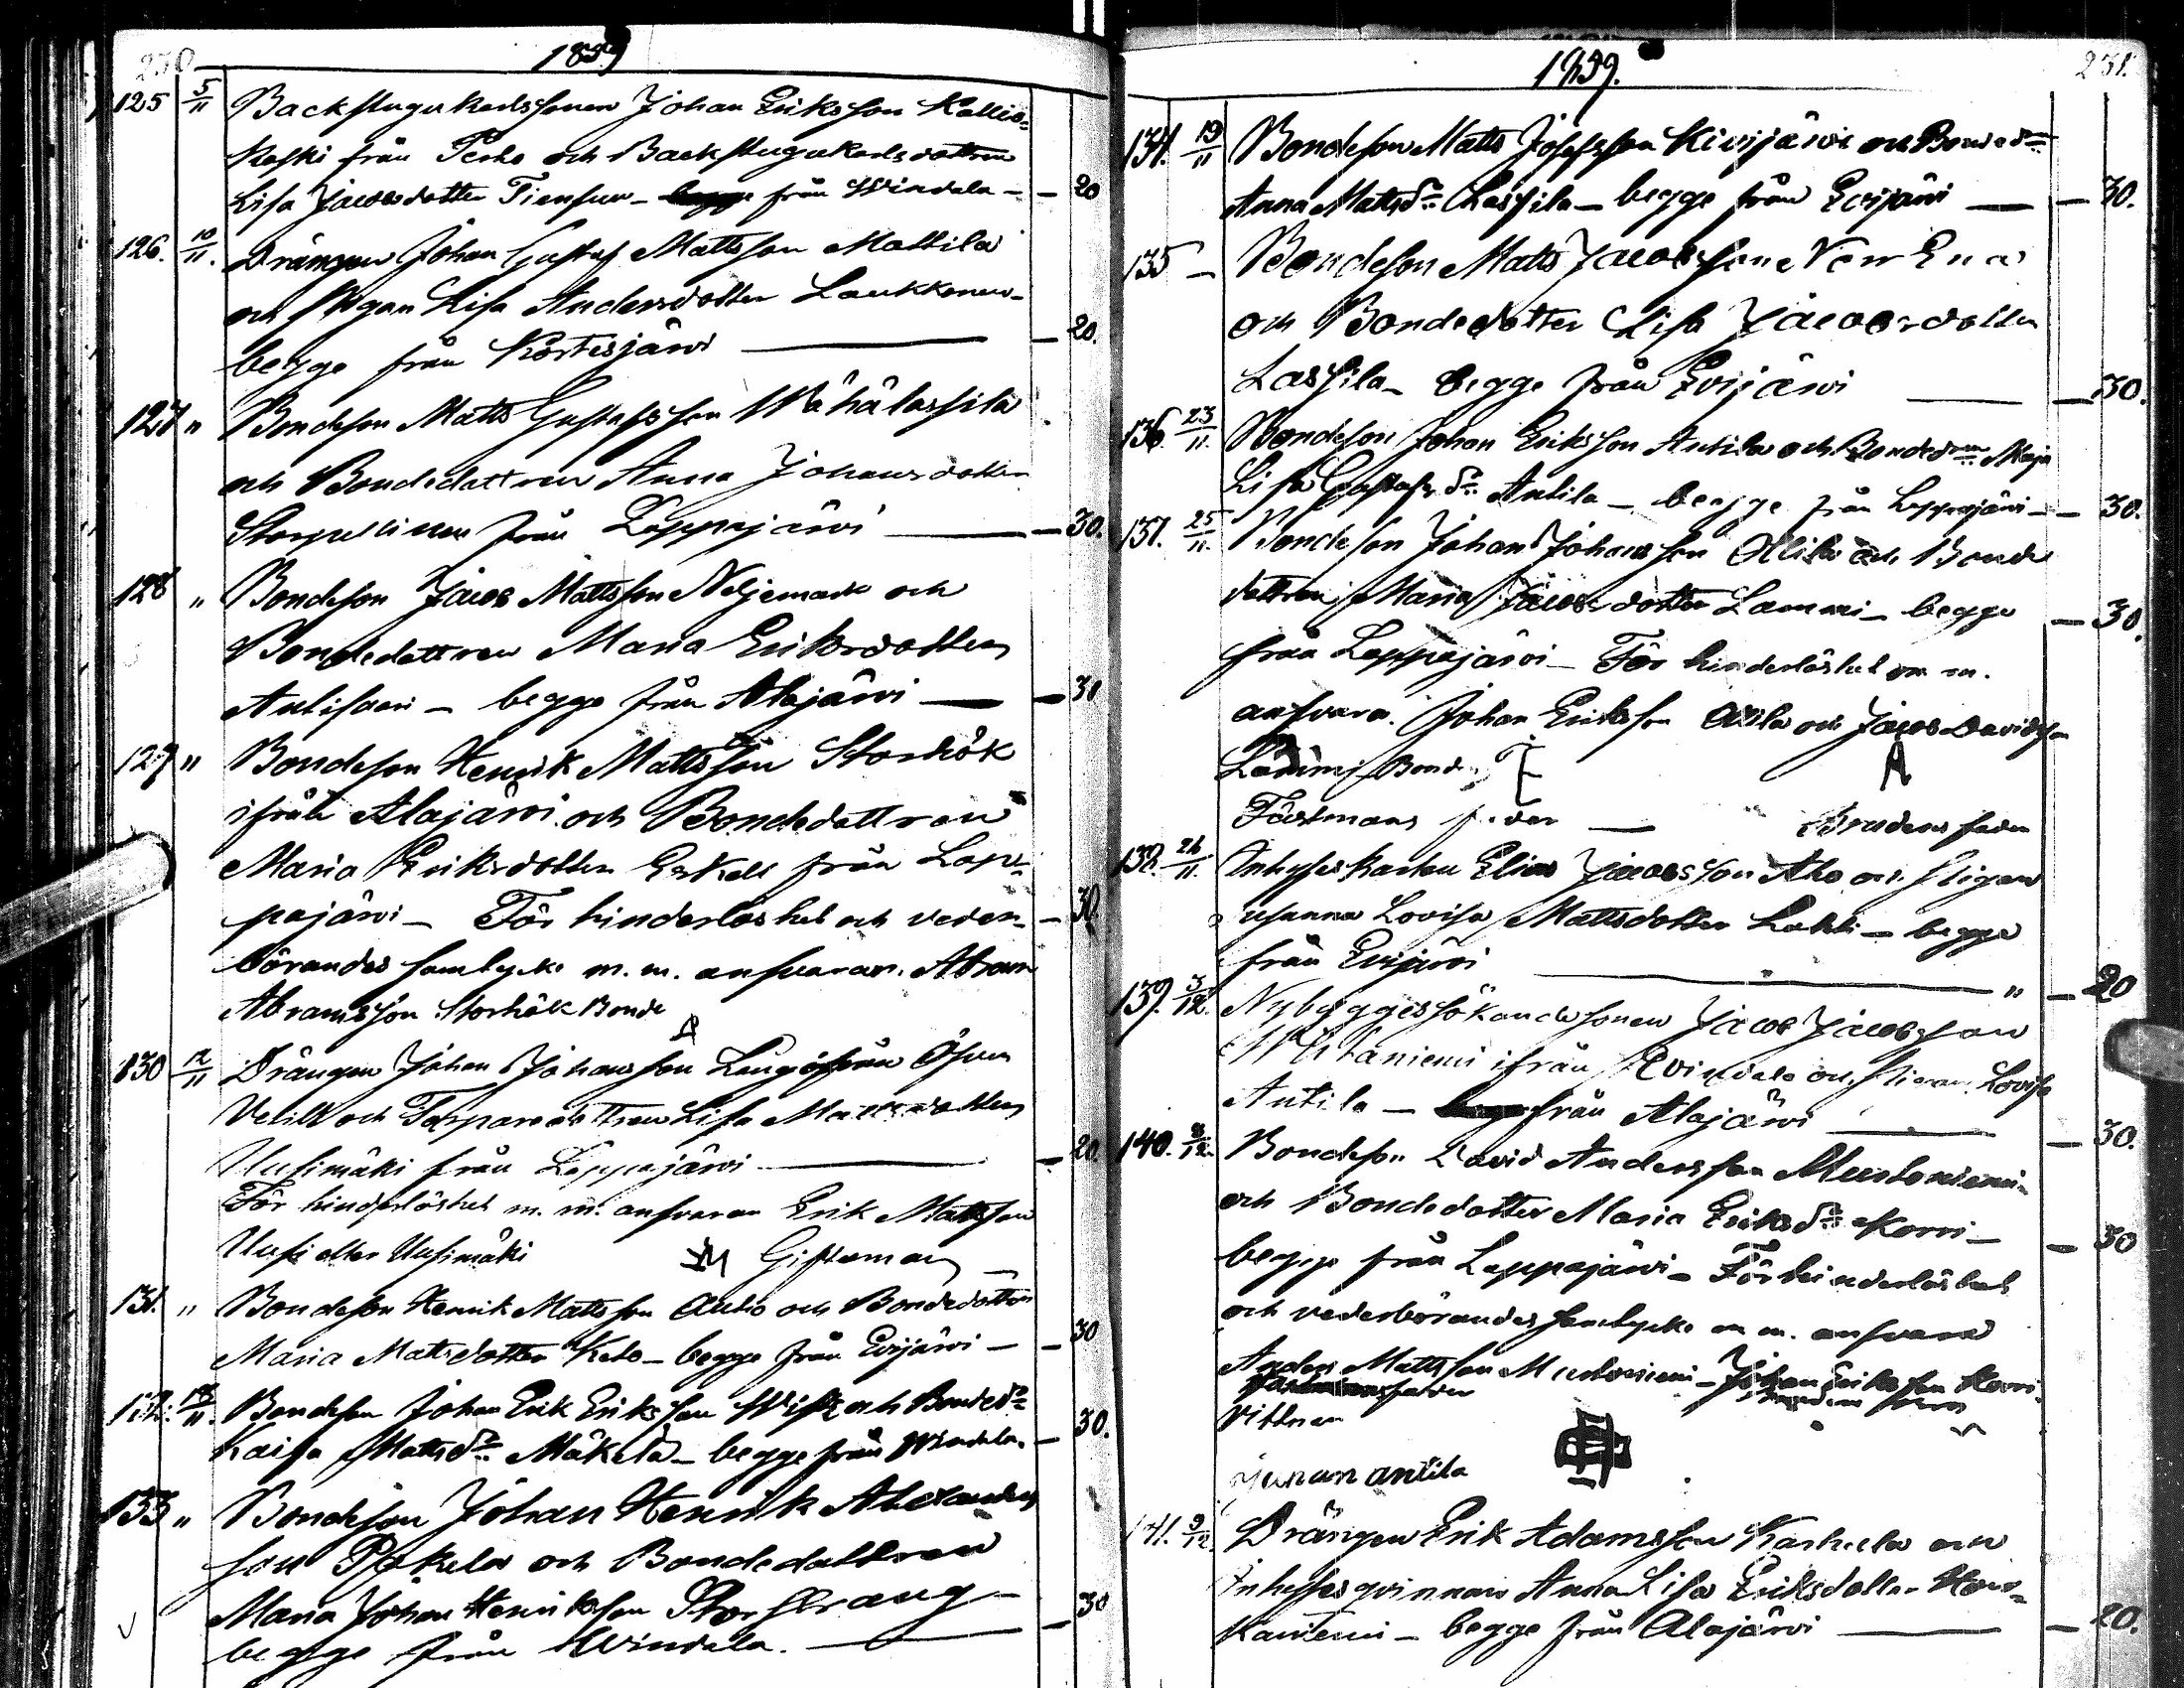 230
1859
125 5/11 Backstugukarlssonen Johan Eriksson Kallio-
koski från Perho och Backstugukarlsdottren
Lisa Jacobsdotter Tiensuu - begge från Windala - - 20
126. 10/11. Drängen Johan Gustaf Mattsson Mattila
och Pigan Lisa Andersdotter Laukkonen -
begge från Kortesjärvi - 20.
127 " Bondeson Matts Gustafsson Wähälassila
och Bondedottren Anna Johansdotter
från Lappajärvi - 30.
128 " Bondeson Jacob Mattsson Neljemark och
Bondedottren Maria Eriksdotter
Antisaari - begge från Alajärvi - 30
129 " Bondeson Henrik Mattsson Storhök
ifrån Alajärvi och Bondedottren
Maria Eriksdotter Erkell från Lap-
pajärvi - För hinderlöshet och veder- - 30.
börandes samtycke m. m. ansvarar. Abram
Abramsson Storhök Bonde
130 12/11 Drängen Johan Johansson Långs från Öfver
Vetill och Torparedottren Lisa Mattsdotter
Uusimäki från Lappajärvi - 20.
För hinderlöshet m. m. ansvarar Erik Mattsson
Uusi eller Uusimäki Giftoman
131. " Bondeson Henrik Mattsson Autio och Bondedotter
Maria Mattsdotter Keto - begge från Evijärvi - - 30
132. 18/11. Bondeson Johan Erik Eriksson Wisk och Bonded:r
Kaisa Mattsd:r Mäkelä - begge från Windala. - 30.
133 " Bondeson Johan Henrik Alexanders
son Pokela och Bondedottren
Maria Johan Henriksson Storstrang -
begge från Windala. - 30
1859.
231.
134. 19/11 Bondeson Matts Josefsson Kivijärvi och Bonded:r
Anna Mattsd:r Lassila - begge från Evijärvi - 30.
135 - Bondeson Matts Jacobsson Ena
och Bondedotter Lisa Jacobsdotter
Lassila - begge från Evijärvi - 30.
136. 23/11. Bondeson Johan Eriksson Antila och Bonded:ren Maja
Lisa Gustafsd:r Antila - begge från Lappajärvi - - 30.
137. 25/11. Bondeson Johan Johansson Ollila och Bonde
dottren Maria Jacobsdotter Lammi - begge - 30.
från Lappajärvi - För hinderlöshet m m.
ansvara. Johan Eriksson Ollila och Jacob Davidsson
Lammi Bonde
Fästmans fader - Brudens fader
138. 26/11. Inhyses karlen Elias Jacobsson Aho och Pigan
Susanna Lovisa Mattsdotter Lahti - begge
från Evijärvi " - 20
139. 3/12. Nybyggessökandesonen Jacob Jacobsson
ifrån Windala och Pigan Lovisa
Antila - från Alajärvi - 30.
140. 8/12. Bondeson David Andersson Mustoniemi
och Bondedotter Maria Eriksd:r Korvi - - 30
begge från Lappajärvi - För hinderlöshet
och vederbörandes samtycke m m. ansvara
Anders Mattsson Mustoniemi - Johan Eriksson Korvi.
Vittnar
junan antila
141. 9/12. Drängen Erik Adamsson Karhula och
Inhyses qvinnan Anna Lisa Eriksdotter
- begge från Alajärvi - 20.